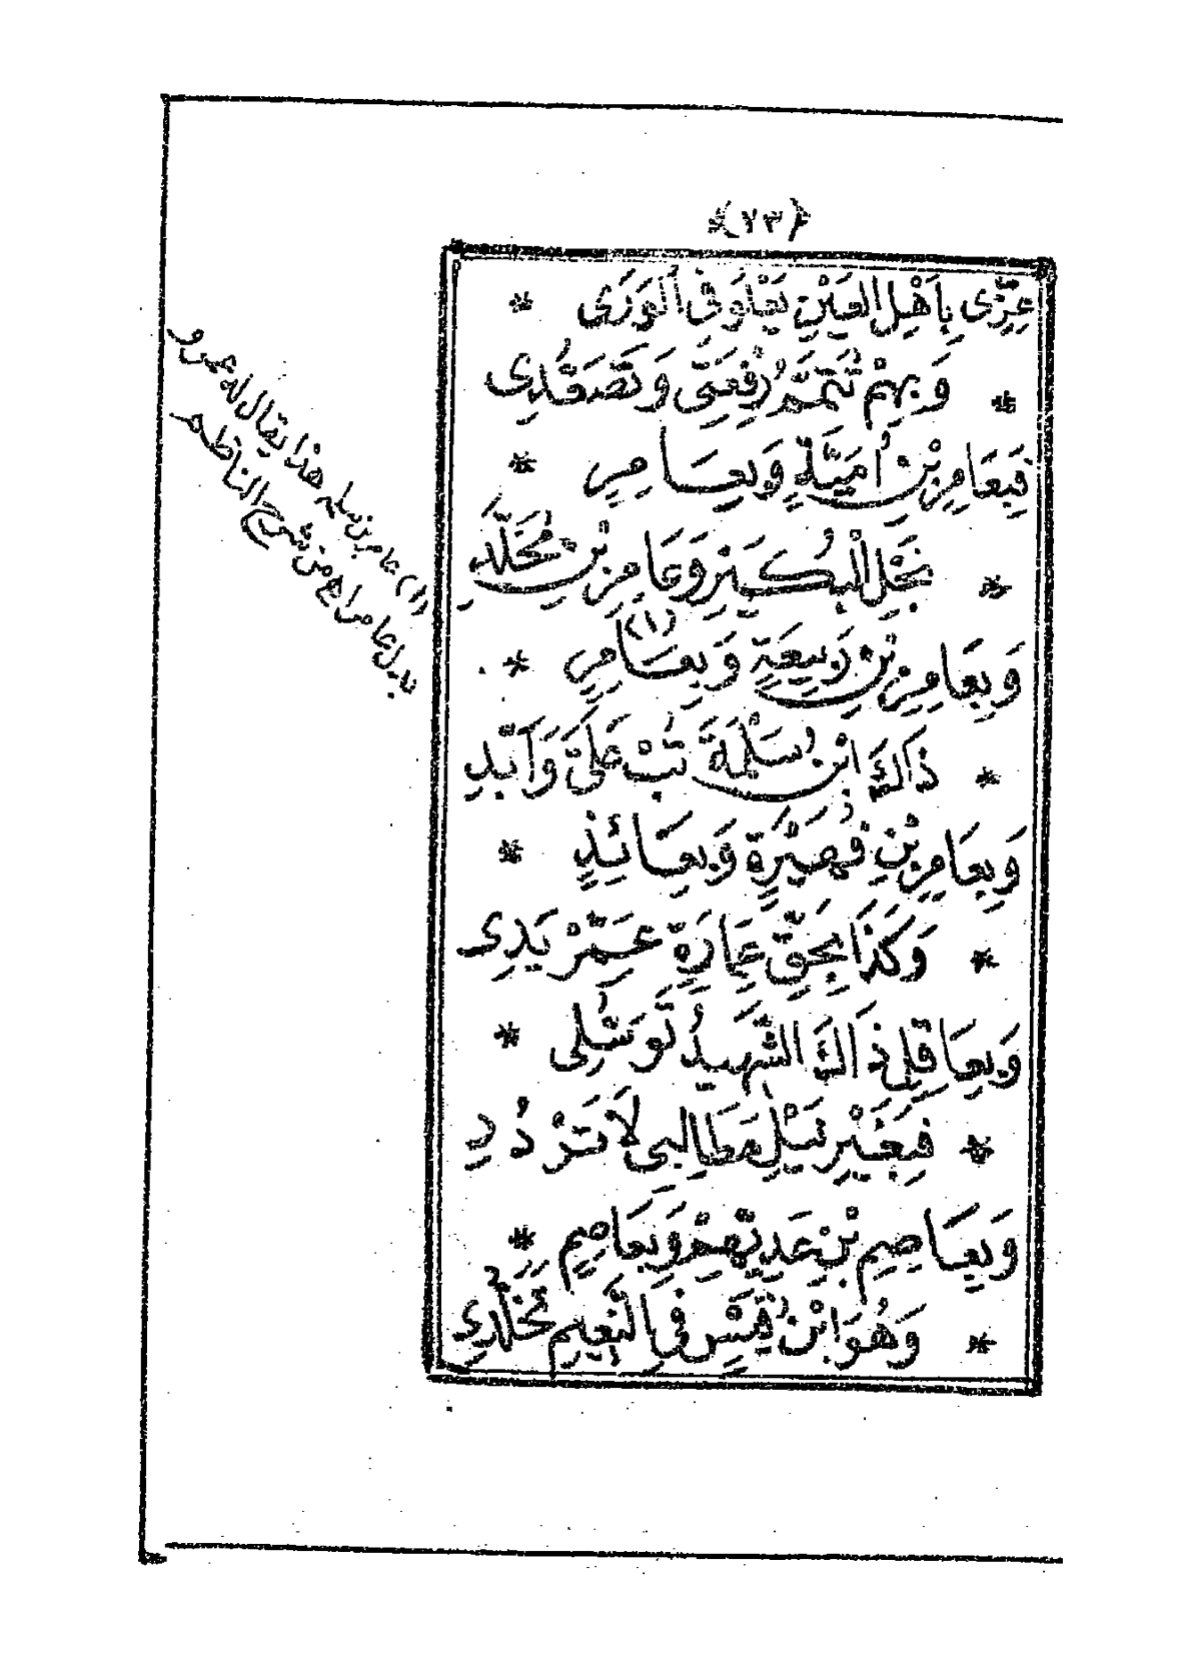 ﴿٢٣﴾
عِزِّى بِاَهْلِ الْعَيْنِ يَعْلُو فِى الْوَرَى *
* وَبِهِمْ تُتَمَّمُ رِفْعَتِى وَتَصَعُّدِى
فَبِعَامِرِ بْنِ اُمَيَّةٍ وَبِعَامِرٍ *
* نَجْلِ الْبُكَيْرِ وَعَامِرِ بْنِ مُخَلَّدِ
وَبِعَامِرِ بْنِ رَبِيعَةٍ وَبِعَامِرٍ (١) *
* ذَاكَ ابْنُ سَلْمَةَ تُبْ عَلَىَّ وَاَيِّدِ
وَبِعَامِرِ بْنِ فُهَيْرَةٍ وَبِعَائِذٍ *
* وَكَذَا بِحَقِّ عِمَارَةٍ عَمِّرْ يَدِى
وَبِعَاقِلٍ ذَاكَ الشَّهِيدُ تَوَسُّلِى *
* فَبِغَيْرِ نَيْلِ مَطَالِبِى لَا تَرْدُدِ
وَبِعَاصِمِ بْنِ عَدِيِّهِمْ وَبِعَاصِمٍ *
* وَهُوَ ابْنُ قَيْسٍ فِى النَّعِيمِ مُخَلَّدِى
(١) عامر بن سلمه هذا يقال له عمرو
بدل عامر اه من شرح الناظم